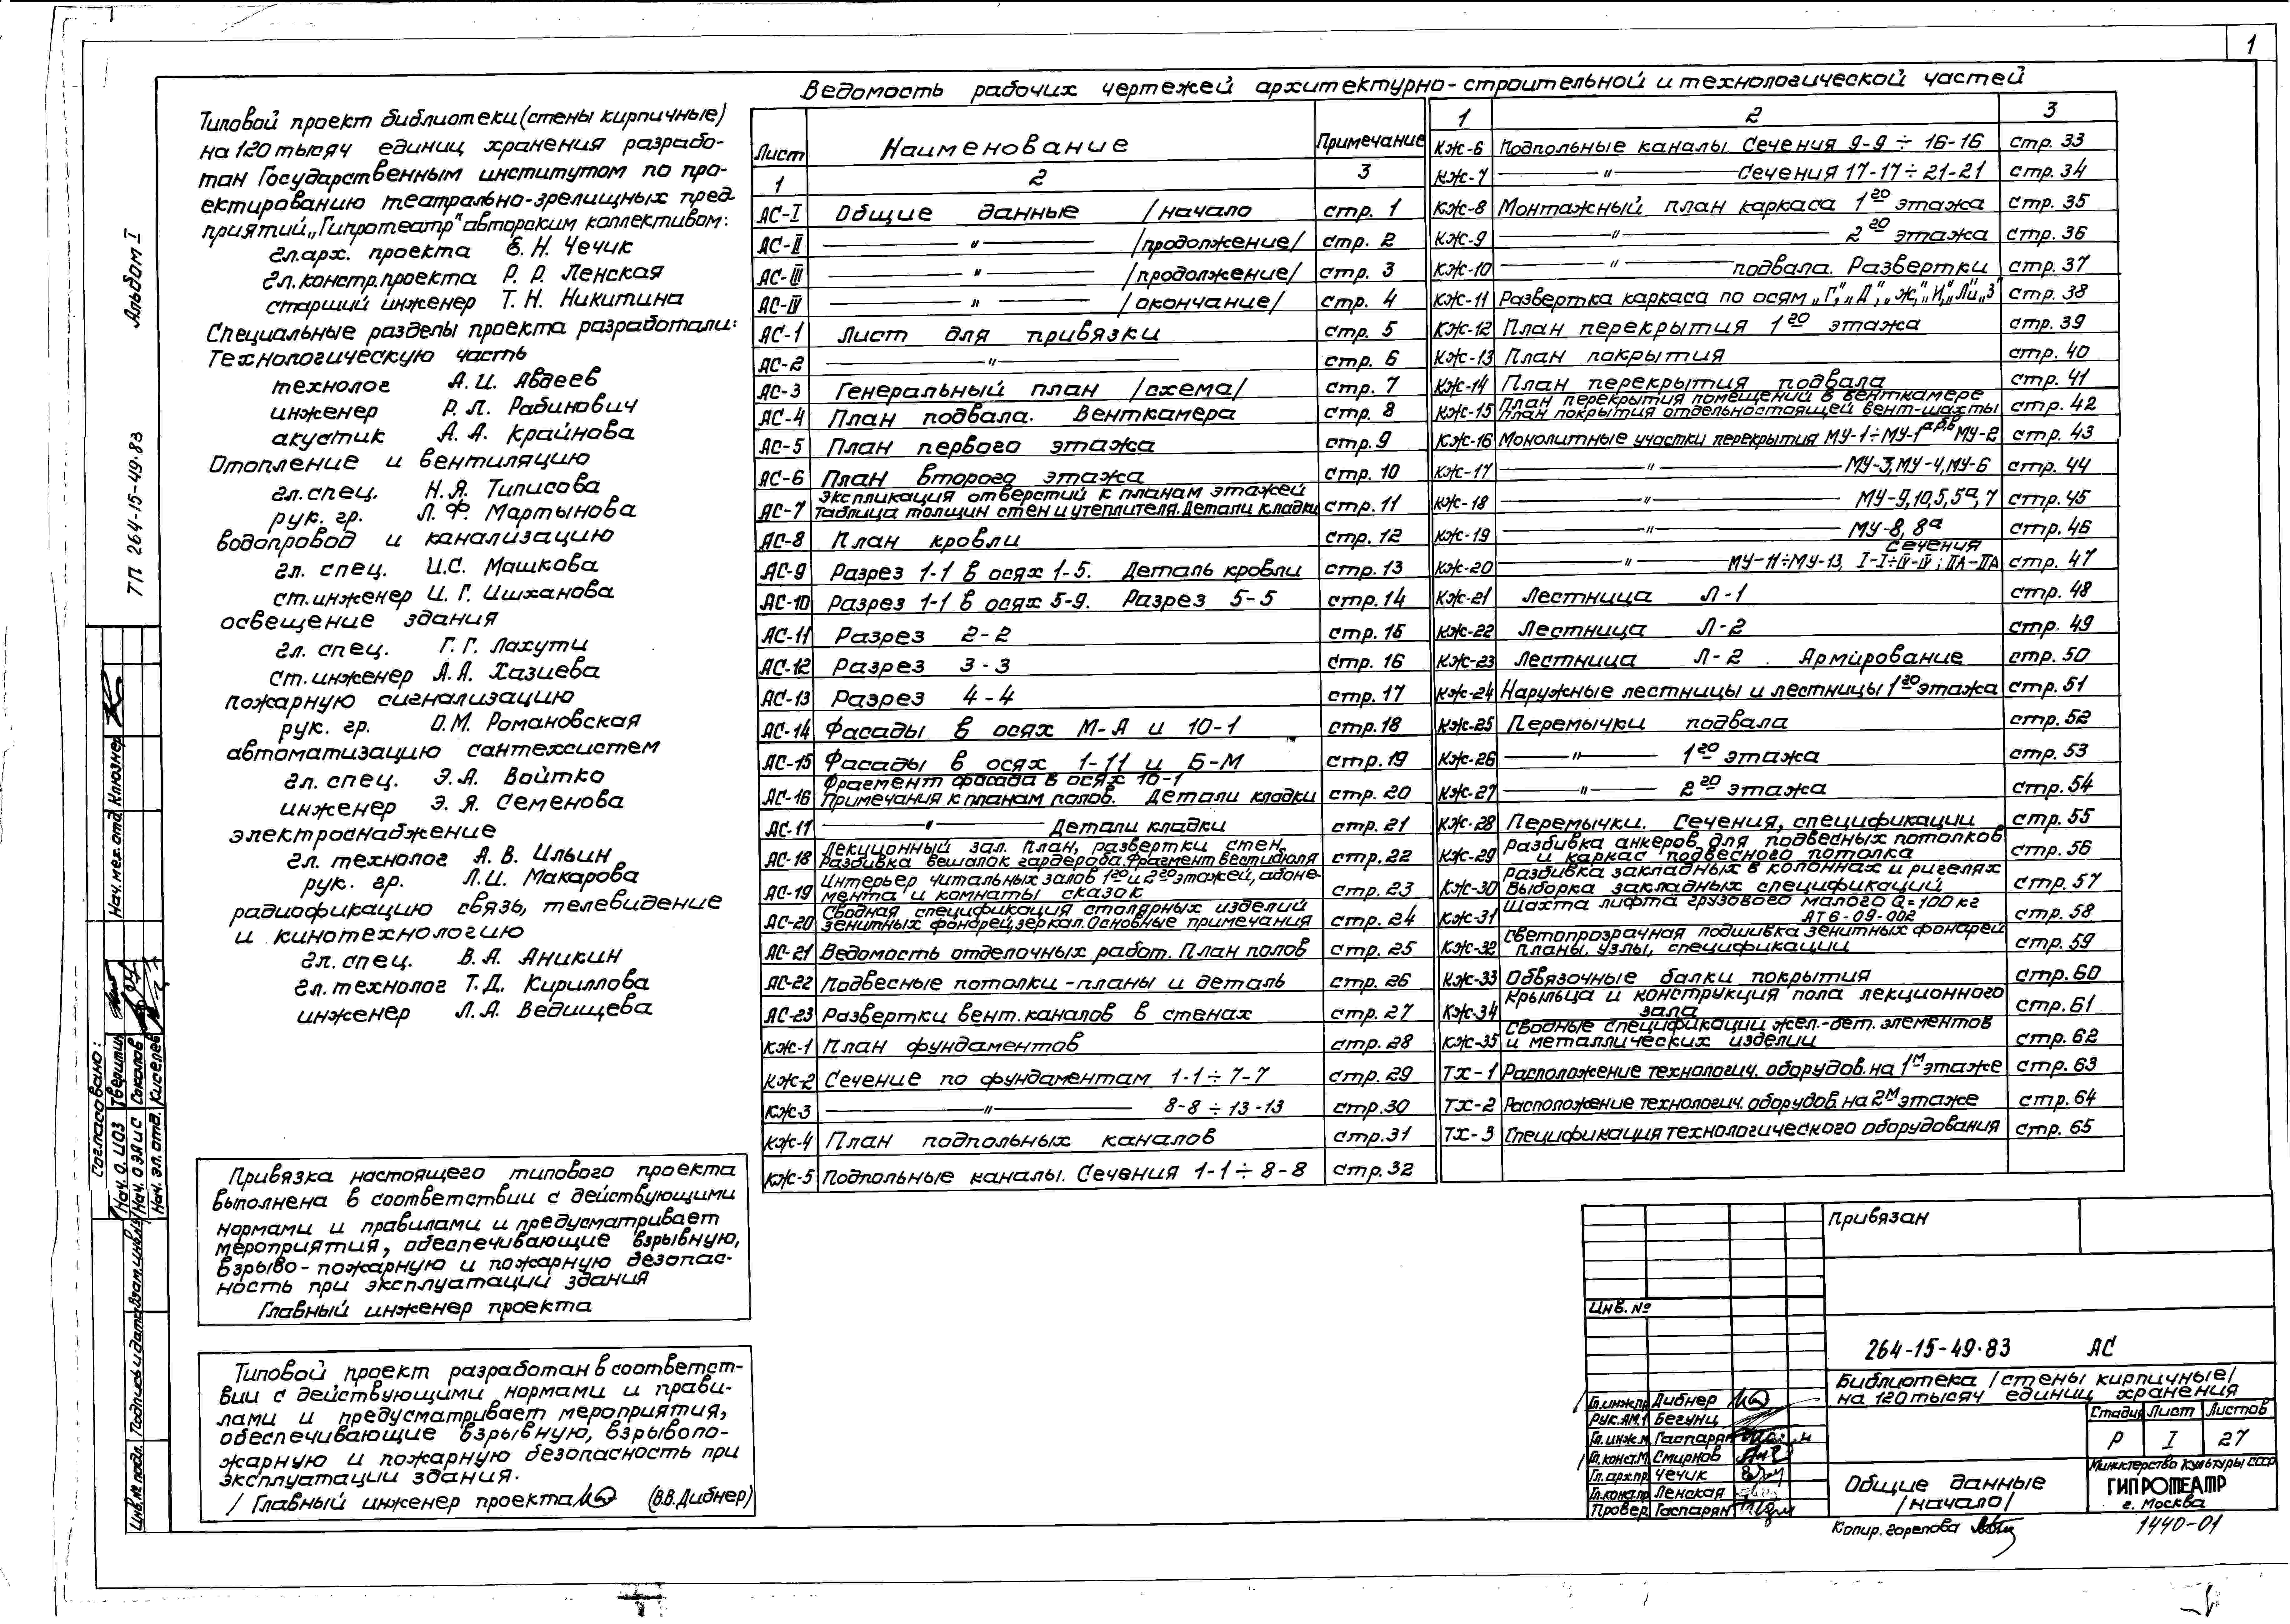 1
Альбом I
ТП 264-15-49.83
Типовой проект библиотеки (стены кирпичные)
на 120 тысяч единиц хранения разрабо-
тан Государственным институтом по про-
ектированию театрально-зрелищных пред-
приятий „Гипротеатр" авторским коллективом:
гл.арх. проекта Е. Н. Чечик
гл.констр.проекта Р. Р. Ленская
старший инженер Т. Н. Никитина
Специальные разделы проекта разработали:
Технологическую часть
технолог А. И. Авдеев
инженер Р. Л. Рабинович
акустик А. А. Крайнова
Отопление и вентиляцию
гл.спец. Н.Я. Типисова
рук. гр. Л. Ф. Мартынова
водопровод и канализацию
гл. спец. И.С. Машкова
ст.инженер И. Г. Ишханова
освещение здания
гл. спец. Г. Г. Лахути
ст.инженер А.А. Хазиева
пожарную сигнализацию
рук. гр. О.М. Романовская
автоматизацию сантехсистем
гл. спец. Э.А. Войтко
инженер Э. Я. Семенова
электроснабжение
гл. технолог А. В. Ильин
рук. гр. Л.И. Макарова
радиофикацию связь, телевидение
и кинотехнологию
гл.спец. В.А. Аникин
гл.технолог Т.Д. Кириллова
инженер Л.А. Ведищева
Привязка настоящего типового проекта
выполнена в соответствии с действующими
нормами и правилами и предусматривает
мероприятия, обеспечивающие взрывную,
взрыво-пожарную и пожарную безопас-
ность при эксплуатации здания
Главный инженер проекта
Типовой проект разработан в соответст-
вии с действующими нормами и прави-
лами и предусматривает мероприятия,
обеспечивающие взрывную, взрывопо-
жарную и пожарную безопасность при
эксплуатации здания.
/ Главный инженер проекта (В.В.Дибнер)
Ведомость рабочих чертежей архитектурно-строительной и технологической частей
Лист Наименование Примечание
1 2 3
АС-I Общие данные /начало стр. 1
АС-II —— " —— /продолжение/ стр. 2
АС-III —— " —— /продолжение/ стр. 3
АС-IV —— " —— /окончание/ стр. 4
АС-1 Лист для привязки стр. 5
АС-2 —— " —— стр. 6
АС-3 Генеральный план /схема/ стр. 7
АС-4 План подвала. Венткамера стр. 8
АС-5 План первого этажа стр. 9
АС-6 План второго этажа стр. 10
АС-7 Экспликация отверстий к планам этажей
Таблица толщин стен и утеплителя. Детали кладки стр. 11
АС-8 План кровли стр. 12
АС-9 Разрез 1-1 в осях 1-5. Деталь кровли стр. 13
АС-10 Разрез 1-1 в осях 5-9. Разрез 5-5 стр. 14
АС-11 Разрез 2-2 стр. 15
АС-12 Разрез 3-3 стр. 16
АС-13 Разрез 4-4 стр. 17
АС-14 Фасады в осях М-А и 10-1 стр. 18
АС-15 Фасады в осях 1-11 и Б-М стр. 19
АС-16 Фрагмент фасада в осях 10-1
Примечания к планам полов. Детали кладки стр. 20
АС-17 —— " —— Детали кладки стр. 21
АС-18 Лекционный зал. План, развертки стен,
Разбивка вешалок гардероба. Фрагмент вестибюля стр. 22
АС-19 Интерьер читальных залов 1го и 2го этажей, абоне-
мента и комнаты сказок стр. 23
АС-20 Сводная спецификация столярных изделий
зенитных фонарей, зеркал. Основные примечания стр. 24
АС-21 Ведомость отделочных работ. План полов стр. 25
АС-22 Подвесные потолки - планы и деталь стр. 26
АС-23 Развертки вент. каналов в стенах стр. 27
КЖ-1 План фундаментов стр. 28
КЖ-2 Сечение по фундаментам 1-1 ÷ 7-7 стр. 29
КЖ-3 —— " —— 8-8 ÷ 13-13 стр. 30
КЖ-4 План подпольных каналов стр. 31
КЖ-5 Подпольные каналы. Сечения 1-1 ÷ 8-8 стр. 32
1 2 3
КЖ-6 Подпольные каналы Сечения 9-9 ÷ 16-16 стр. 33
КЖ-7 —— " —— Сечения 17-17 ÷ 21-21 стр. 34
КЖ-8 Монтажный план каркаса 1го этажа стр. 35
КЖ-9 —— " —— 2го этажа стр. 36
КЖ-10 —— " —— подвала. Развертки стр. 37
КЖ-11 Развертка каркаса по осям „Г", „Д", „Ж", „И", „Л и „З" стр. 38
КЖ-12 План перекрытия 1го этажа стр. 39
КЖ-13 План покрытия стр. 40
КЖ-14 План перекрытия подвала стр. 41
КЖ-15 План перекрытия помещений в венткамере
План покрытия отдельностоящей вент-шахты стр. 42
КЖ-16 Монолитные участки перекрытия МУ-1 ÷ МУ-1а,б,в МУ-2 стр. 43
КЖ-17 —— " —— МУ-3, МУ-4, МУ-6 стр. 44
КЖ-18 —— " —— МУ-9, 10, 5, 5а, 7 стр. 45
КЖ-19 —— " —— МУ-8, 8а стр. 46
КЖ-20 —— " —— МУ-11 ÷ МУ-13, сечения I-I ÷ IV-IV; IIА-IIА стр. 47
КЖ-21 Лестница Л-1 стр. 48
КЖ-22 Лестница Л-2 стр. 49
КЖ-23 Лестница Л-2. Армирование стр. 50
КЖ-24 Наружные лестницы и лестницы 1го этажа стр. 51
КЖ-25 Перемычки подвала стр. 52
КЖ-26 —— " —— 1го этажа стр. 53
КЖ-27 —— " —— 2го этажа стр. 54
КЖ-28 Перемычки. Сечения, спецификации стр. 55
КЖ-29 Разбивка анкеров для подвесных потолков
и каркас подвесного потолка стр. 56
КЖ-30 Разбивка закладных в колоннах и ригелях
Выборка закладных спецификаций стр. 57
КЖ-31 Шахта лифта грузового малого Q=100 кг
АТ6-09-002 стр. 58
КЖ-32 Светопрозрачная подшивка зенитных фонарей
планы, узлы, спецификации стр. 59
КЖ-33 Обвязочные балки покрытия стр. 60
КЖ-34 Крыльца и конструкция пола лекционного
зала стр. 61
КЖ-35 Сводные спецификации жел.-бет. элементов
и металлических изделий стр. 62
ТХ-1 Расположение технологич. оборудов. на 1м этаже стр. 63
ТХ-2 Расположение технологич. оборудов. на 2м этаже стр. 64
ТХ-3 Спецификация технологического оборудования стр. 65
Согласовано:
Нач. О ИОЗ Тверитин
Нач. ОЭАиС Соколов
Нач. эл. отд. Киселев
Нач. мех. отд. Клюзнер
Инв.№ подл. Подпись и дата Взам.инв.№
Привязан
Инв. №
264-15-49.83 АС
Библиотека /стены кирпичные/
на 120 тысяч единиц хранения
Гл.инж.пр. Дибнер
Рук. АМ.1 Бегунц
Гл.инж.М Гаспарян
Гл.конст.М Смирнов
Гл.арх.пр. Чечик
Гл.конст.пр Ленская
Провер. Гаспарян
Стадия Лист Листов
Р I 27
Общие данные
/начало/
Министерство культуры СССР
ГИПРОТЕАТР
г. Москва
Копир. Горелова
1440-01